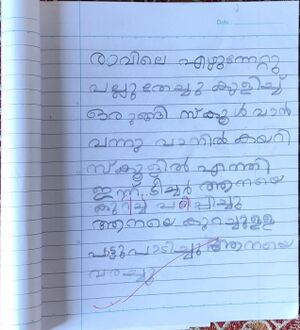 Date :
രാവിലെ എഴുന്നേറ്റു
പല്ലു തേച്ചു കുളിച്ച്
ഒരുങ്ങി സ്കൂൾ വാൻ
വന്നു വാനിൽ കയറി
സ്കൂളിൽ എത്തി
ഇന്ന് ടീച്ചർ ആനയെ
കുറിച്ച് പഠിപ്പിച്ചു
ആനയെ കുറച്ചുള്ള
പാട്ടുപാടിച്ചു ആനയെ
വരച്ചു